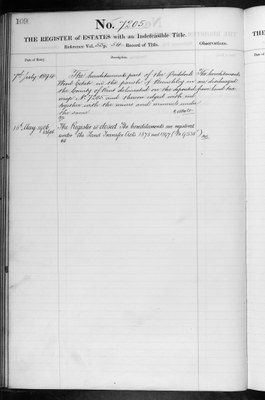 108
No. 7205
THE REGISTER of ESTATES with an Indefeasible Title
Reference Vol. Record of Title. Observations.
Date of Entry. Description.
7th July 1894 The hereditaments part of the The hereditaments
Estate in the parish of in are discharged
the County of Kent delineated on the deposited from land tax
map No 7205 and thereon edged with red
together with the mines and minerals under
the same
15th May 1906 The Register is closed The hereditaments are registered
under the Land Transfer Acts 1875 and 1897